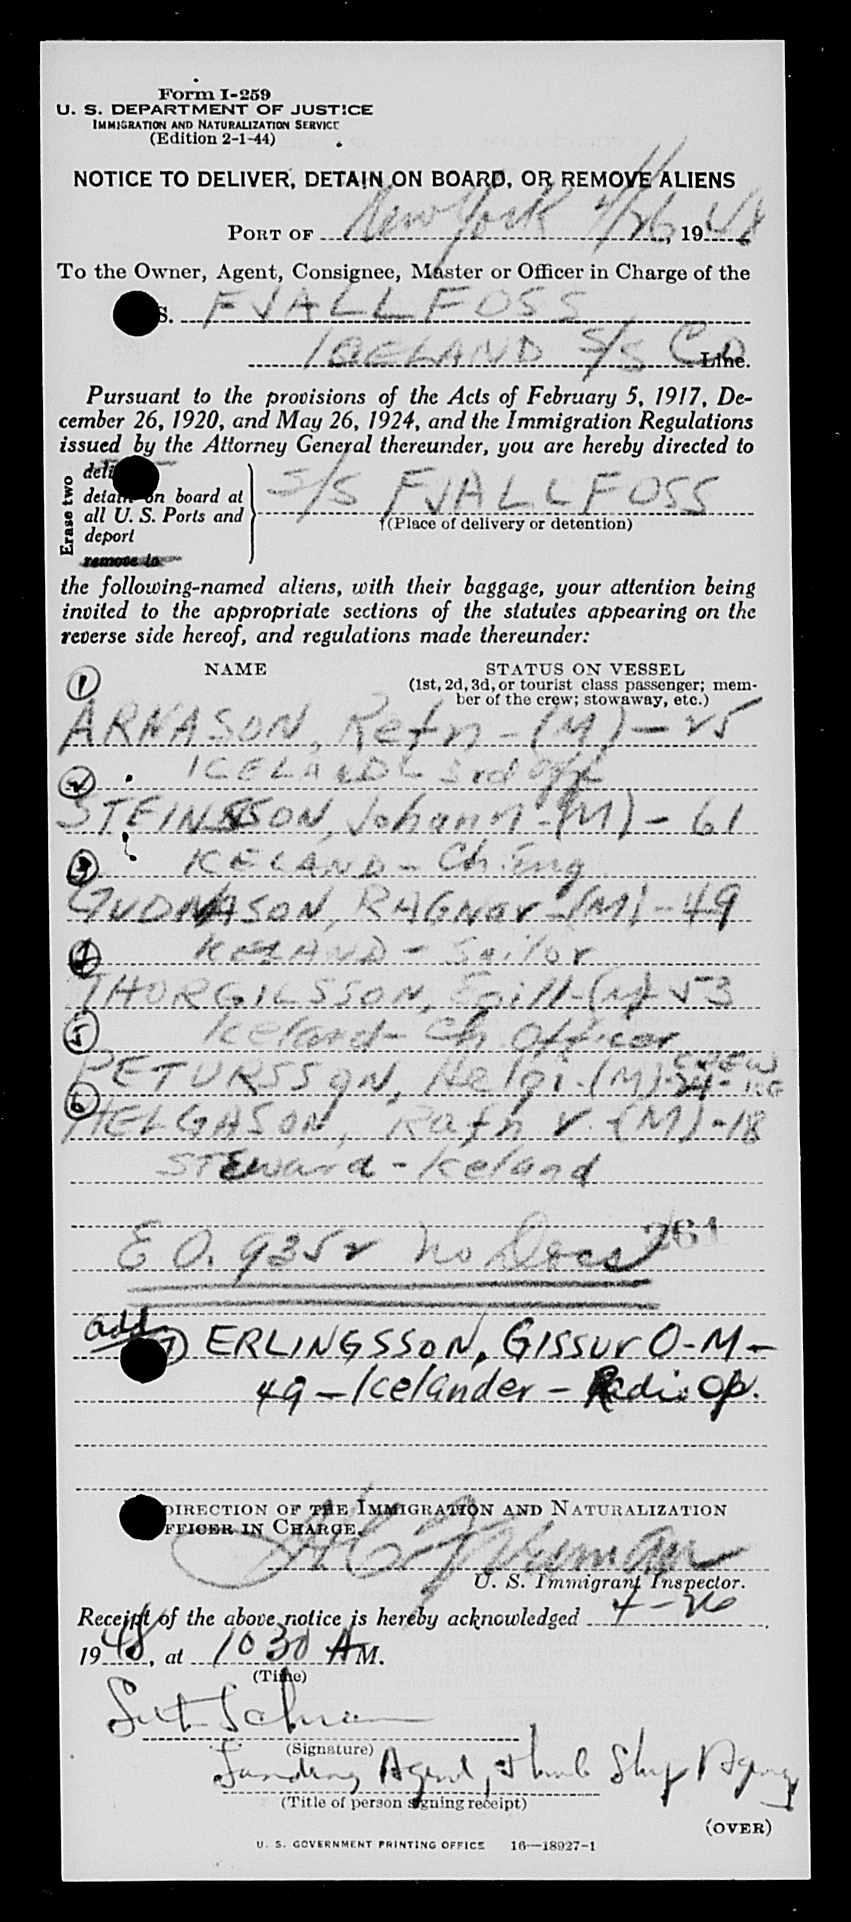 Form I-259
U. S. DEPARTMENT OF JUSTICE
IMMIGRATION AND NATURALIZATION SERVICE
(Edition 2-1-44)
NOTICE TO DELIVER, DETAIN ON BOARD, OR REMOVE ALIENS
PORT OF New York 4/26, 1948
To the Owner, Agent, Consignee, Master or Officer in Charge of the
S. FJALLFOSS
ICELAND S/S Co Line.
Pursuant to the provisions of the Acts of February 5, 1917, De-
cember 26, 1920, and May 26, 1924, and the Immigration Regulations
issued by the Attorney General thereunder, you are hereby directed to
Erase two
detain on board at
all U. S. Ports and
deport
remove to
S/S FJALLFOSS
(Place of delivery or detention)
the following-named aliens, with their baggage, your attention being
invited to the appropriate sections of the statutes appearing on the
reverse side hereof, and regulations made thereunder:
NAME STATUS ON VESSEL
(1st, 2d, 3d, or tourist class passenger; mem-
ber of the crew; stowaway, etc.)
1
ARNASON, Refn - (M) - 25
ICELAND - 3rd Off
2
STEINSSON, Johann - (M) - 61
ICELAND - Ch. Eng
3
GUDNASON, RAGNar - (M) - 49
ICELAND - Sailor
4
THORGILSSON, Egill - (M) 53
Iceland - Ch Officer
5
PETURSSON, Helgi - (M) - 24 - CREW
6
HELGASON, Rafn V. (M) - 18
STEward - Iceland
261
E O. 9352 No Docs
add 7) ERLINGSSON, GISSUr O - M -
49 - Icelander - Radio Op.
DIRECTION OF THE IMMIGRATION AND NATURALIZATION
OFFICER IN CHARGE.
U. S. Immigrant Inspector.
Receipt of the above notice is hereby acknowledged 4-26,
1948, at 10 30 AM.
(Time)
(Signature)
Landing Agent, Ship Agency
(Title of person signing receipt)
(OVER)
U. S. GOVERNMENT PRINTING OFFICE 16—18927-1